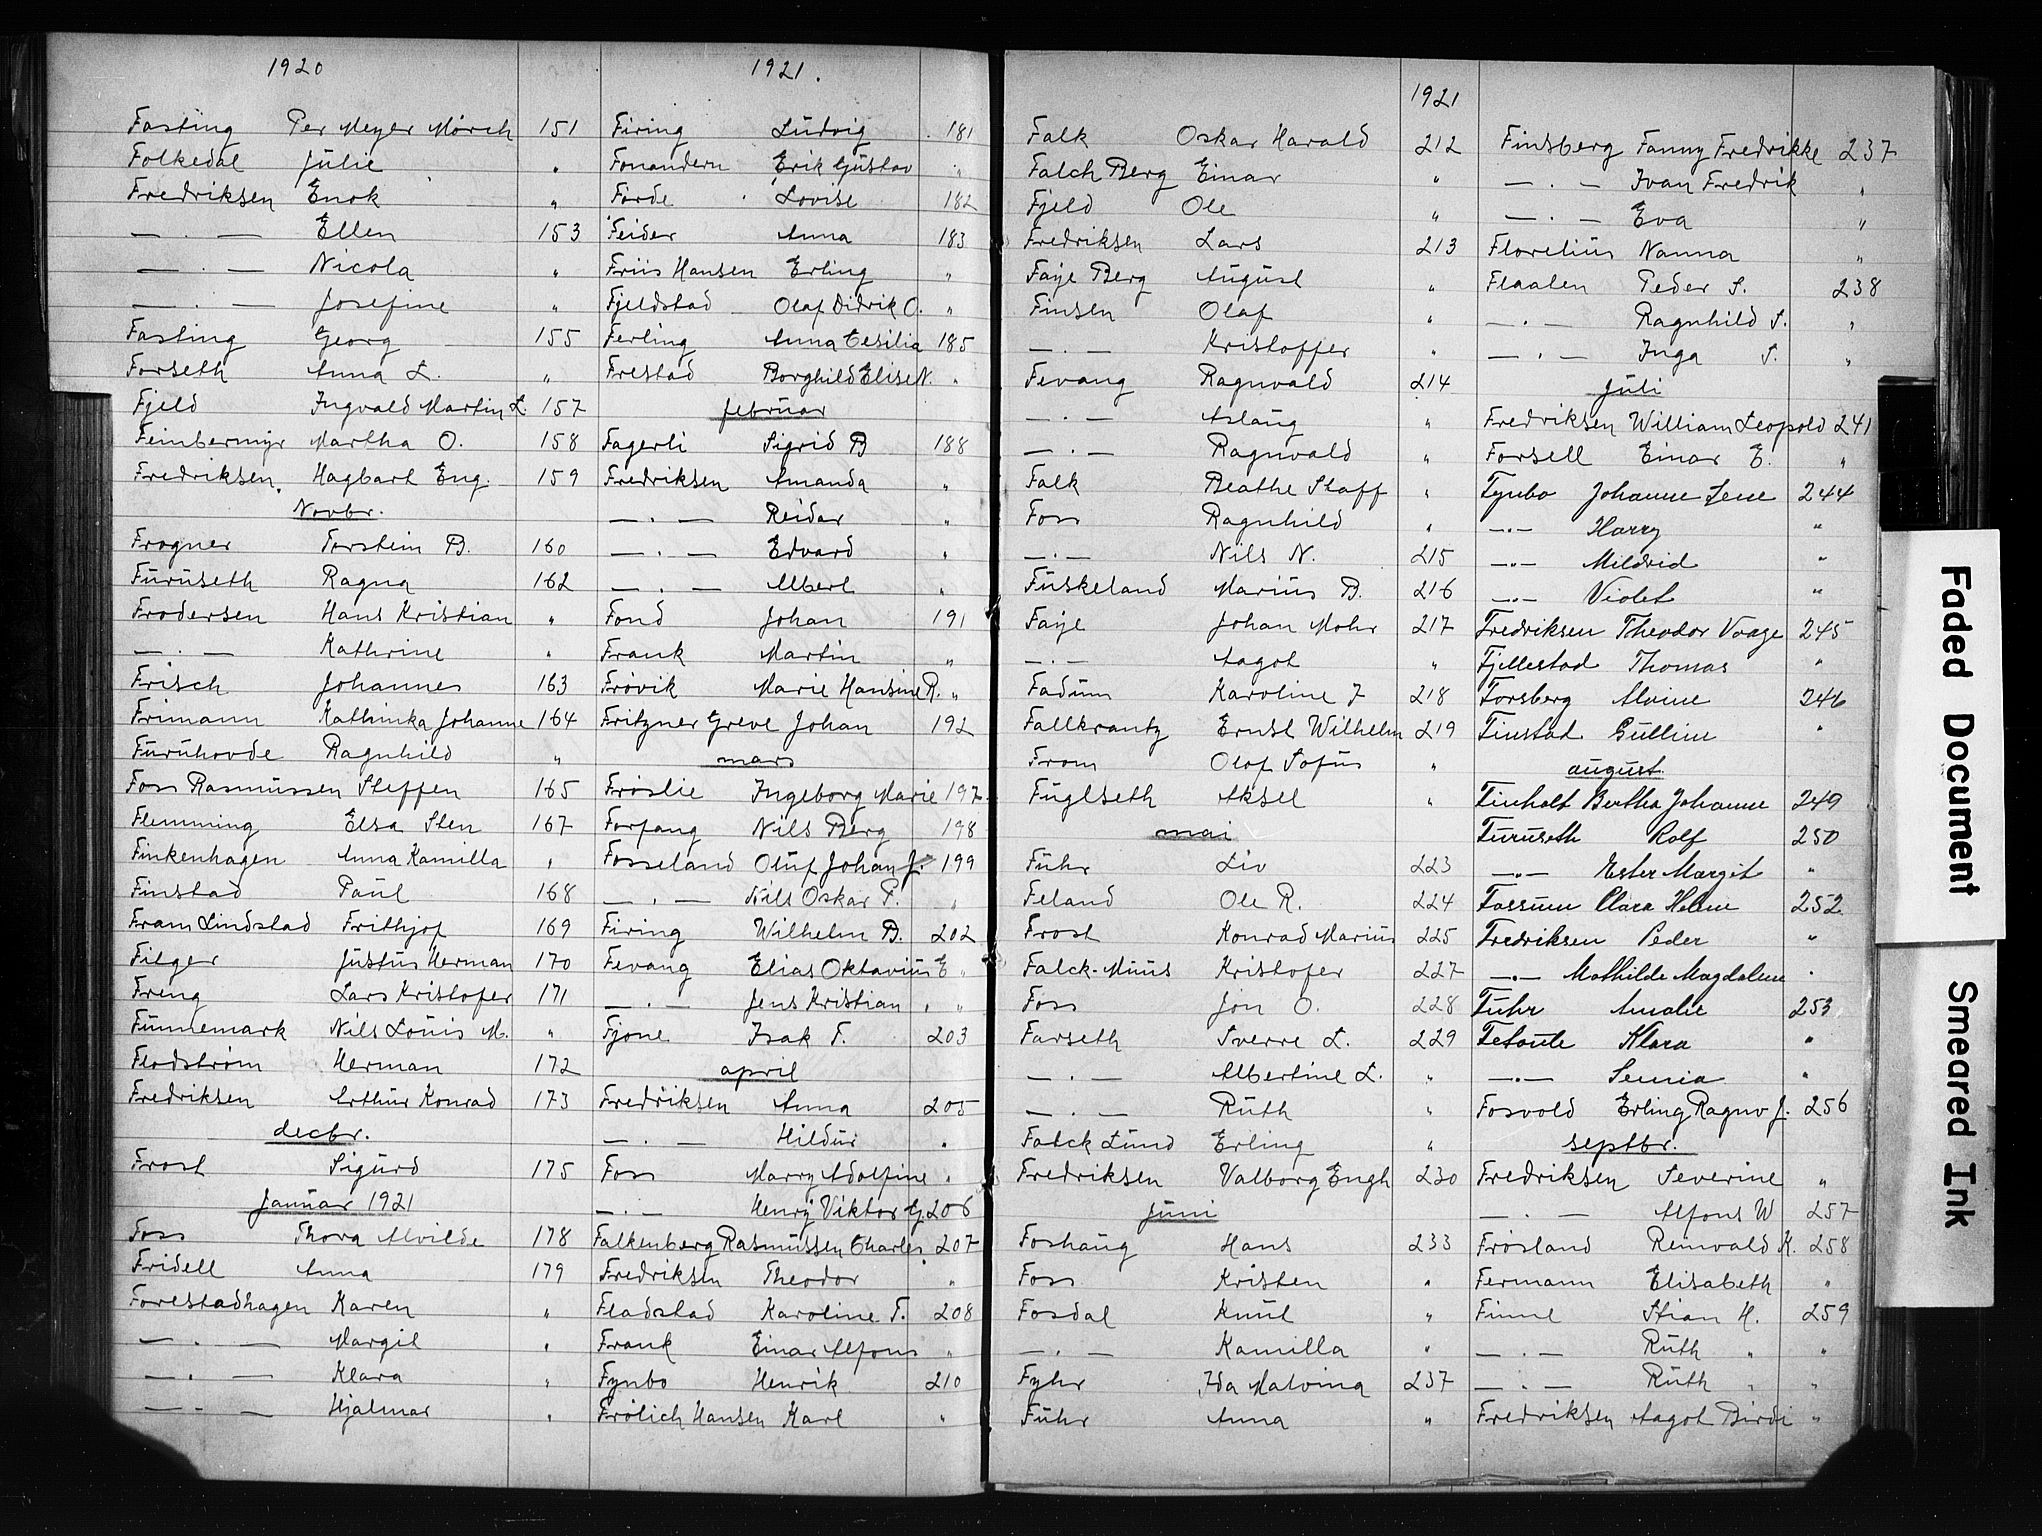 1920
Fasting Per Meyer Mørch 151
Folkedal Julie "
Fredriksen Enok "
— . — Ellen 153
— . — Nicola "
— . — Josefine "
Fasting Georg 155
Forseth Anna L. "
Fjeld Ingvald Martin L. 157
Feinbermyr Martha O. 158
Fredriksen. Hagbart Eng. 159
Novbr.
Frogner Torstein B. 160
Furuseth Ragna 162
Frodersen Hans Kristian "
— . — Kathrine "
Frisch Johannes 163
Frimann Kathinka Johanne 164
Furuhovde Ragnhild "
Foss Rasmussen Steffen 165
Flemming Elsa Sten 167
Finkenhagen Anna Kamilla "
Finstad Paul 168
Fram Lindstad Frithjof 169
Filger Justus Herman 170
Freng Lars Kristofer 171
Funnemark Nils Louis M. "
Flodstrøm Herman 172
Fredriksen Arthur Konrad 173
decbr.
Frost Sigurd 175
Januar 1921
Foss Thora Alvilde 178
Fridell Anna 179
Forestadhagen Karen "
— . — Margit "
— . — Klara "
— . — Hjalmar "
1921.
Firing Ludvig 181
Fonandern Erik Gustav "
Førde Lovise 182
Feider Anna 183
Friis Hansen Erling "
Fjeldstad Olaf Didrik O. "
Ferling Anna Cesilia 185
Frestad Borghild Elise N. "
februar
Fagerli Sigrid B 188
Fredriksen Amanda "
— . — Reidar "
— . — Edvard "
— . — Albert "
Fond Johan 191
Frank Martin "
Frøvik Marie Hansine R. "
Fritzner Greve Johan 192
mars
Frøslie Ingeborg Marie 197
Forfang Nils Berg 198
Fosseland Oluf Johan J. 199
— . — Nils Oskar P. "
Firing Wilhelm B. 202
Fevang Elias Oktavius E "
— . — Jens Kristian "
Fjone Isak T. 203
april
Fredriksen Anna 205
— . — Hildur "
Foss Marry Adolfine "
— . — Henry Viktor G. 206
Falkenberg Rasmussen Charles 207
Fredriksen Theodor "
Fladstad Karoline T. 208
Frank Einar Alfons "
Fynbo Henrik 210
Frølich Hansen Karl "
1921
Falk Oskar Harald 212
Falch Berg Einar "
Fjeld Ole "
Fredriksen Lars 213
Faye Berg August "
Finsen Olaf "
— . — Kristoffer "
Fevang Ragnvald 214
— . — Aslaug "
— . — Ragnvald "
Falk Beathe Staff "
Foss Ragnhild "
— . — Nils N. 215
Fuskeland Marius B. 216
Faye Johan Mohr 217
— . — Aagot "
Fadum Karoline J 218
Fallkrantz Ernst Wilhelm 219
From Olaf Sofus "
Fuglseth Aksel "
mai
Fuhr Liv 223
Feland Ole R. 224
Frost Konrad Marius 225
Falck-Muus Kristofer 227
Foss Jon O. 228
Farseth Sverre L. 229
— . — Albertine L. "
— . — Ruth "
Falck Lund Erling "
Fredriksen Valborg Engh 230
juni
Foshaug Hans 233
Foss Kristen "
Fosdal Knut "
— . — Kamilla "
Fyhr Ida Malvina 237
Fuhr Anna "
Finsberg Fanny Fredrikke 237
— . — Ivan Fredrik "
— . — Eva "
Florelius Nanna "
Flaalen Peder S. 238
— . — Ragnhild S. "
— . — Inga S. "
Juli
Fredriksen William Leopold 241
Forsell Einar E. "
Fynbo Johanne Lene 244
— . — Harry "
— . — Mildrid "
— . — Violet "
Fredriksen Theodor Vaage 245
Fjellestad Thomas "
Forsberg Alvine 246
Finstad Gulline "
august
Finholt Bertha Johanne 249
Furuseth Rolf 250
— . — Ester Margit "
Fossum Clara Helene 252
Fredriksen Peder "
— . — Mathilde Magdalene "
Fuhr Amalie 253
Klara "
— . — "
Fosvold Erling Ragnv J. 256
septbr.
Fredriksen Severine "
— . — Alfons W 257
Frøsland Reinvald K. 258
Fermann Elisabeth "
Finne Stian H. 259
— . — Ruth " "
— . — Ruth " "
Fredriksen Aagot Birdi "
Faded Document
Smeared Ink